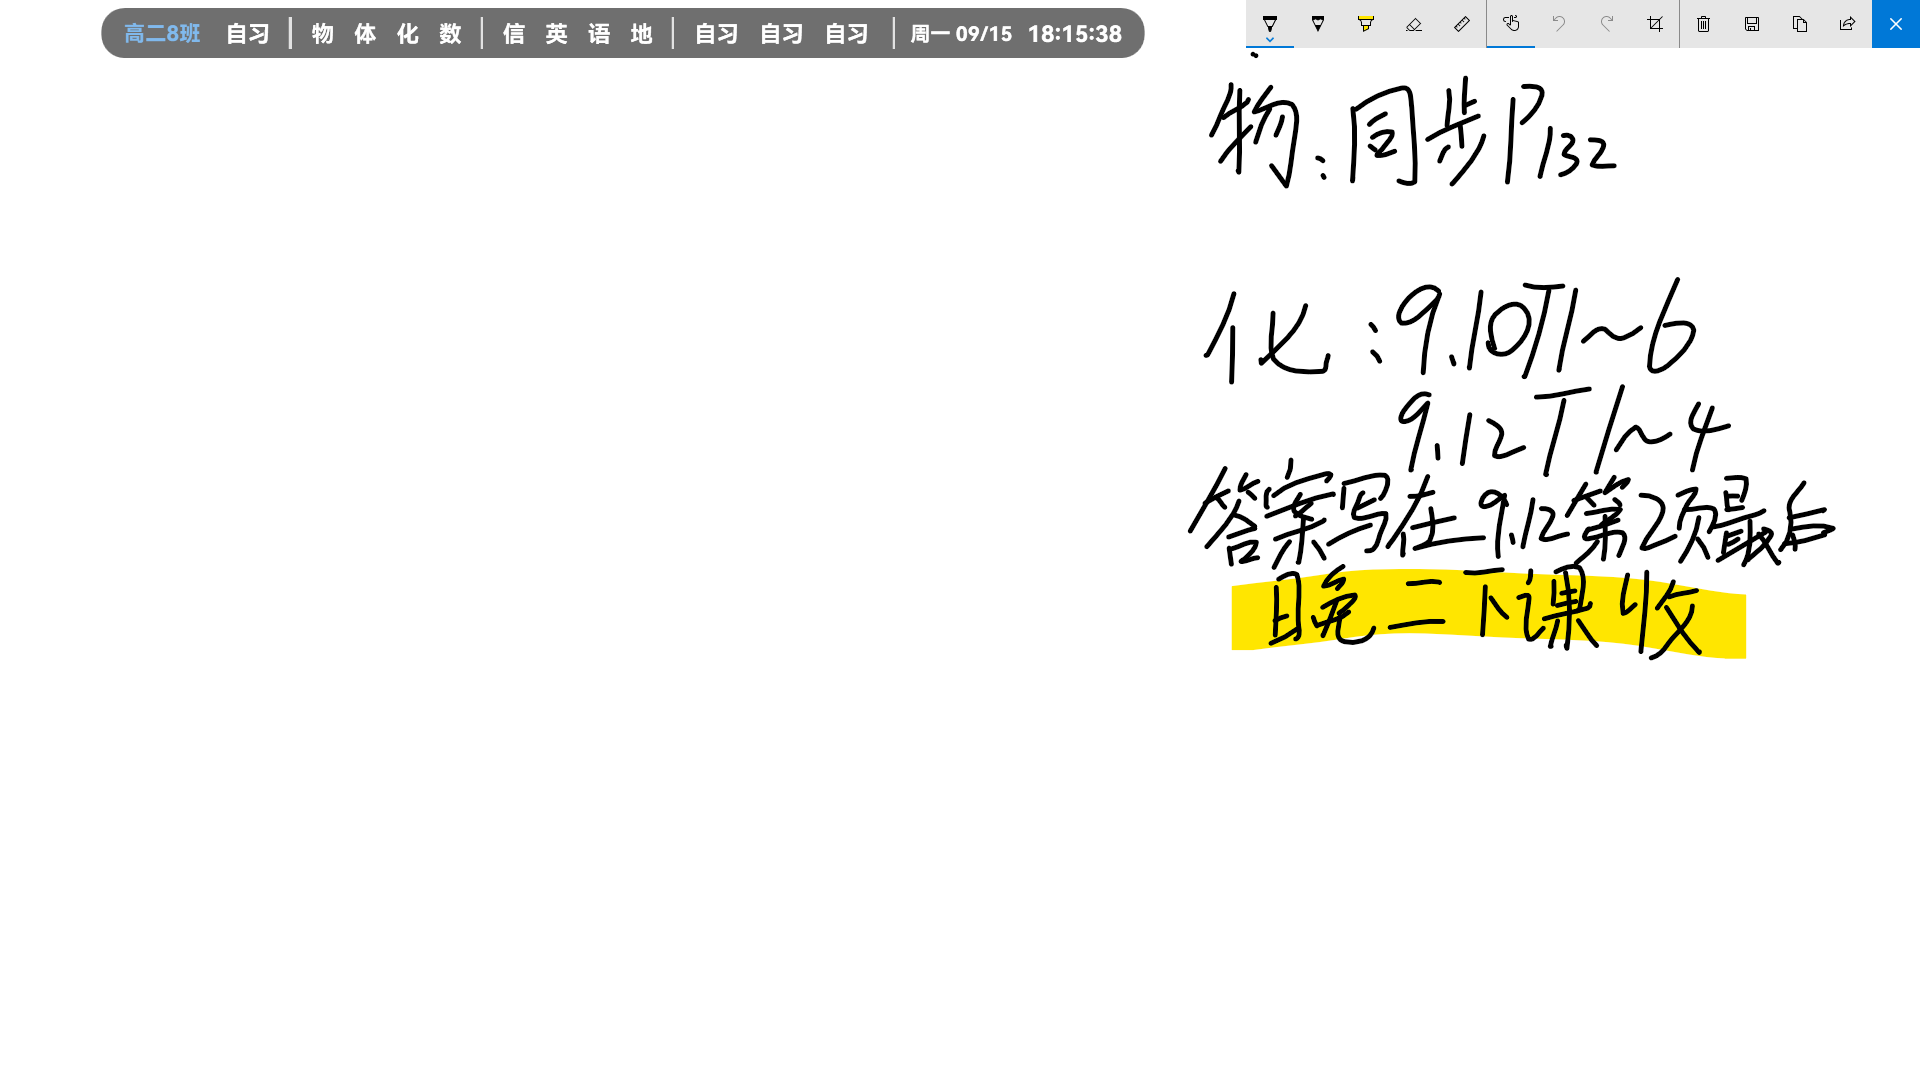 高二8班 自习 | 物 体 化 数 | 信 英 语 地 | 自习 自习 自习 | 周一 09/15 18:15:38
物:同步P132
化:9.10T1~6
9.12T1~4
答案写在9.12第2项最后
晚二下课收